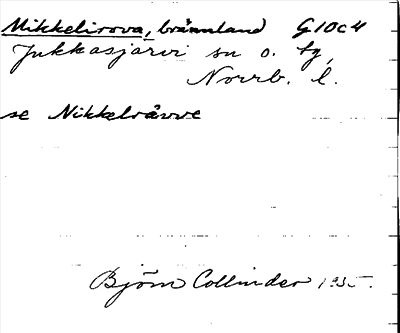 Mikkelirova, brännland G10c4
Jukkasjärvi sn o. tg,
Norrb. l.
se Nikkelråvve
Björn Collinder 1935.